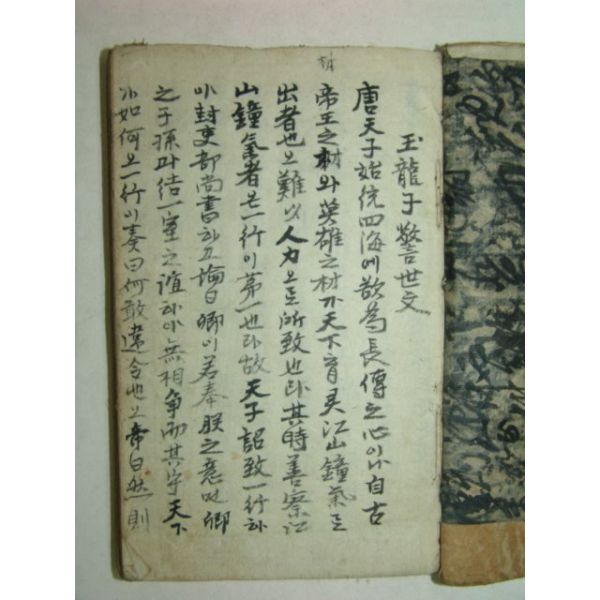 玉龍子警世文
唐天子始統四海에欲爲長傳之心이나自古
帝王之材와英雄之材가天下育灵江山鐘氣로
出者也오難以人力으로所致也라其時善察江
山鐘氣者은一行이第一也라故天子詔致一行하
야封吏部尚書하고諭曰卿이若奉朕之意면卿
之子孫과結一室之誼하야無相争而共守天下
如何오一行이奏曰何敢違令也오帝曰然則